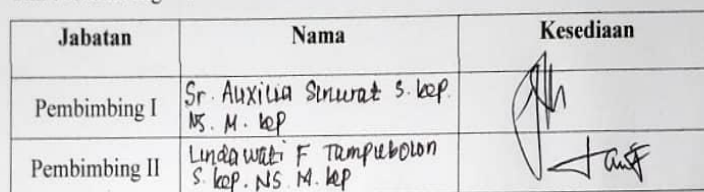 Jabatan Nama Kesediaan
Pembimbing I Sr. Auxilia Sinurat S. kep.
NS. M. kep
Pembimbing II Lindawati F Tampubolon
S. kep. NS. M. kep